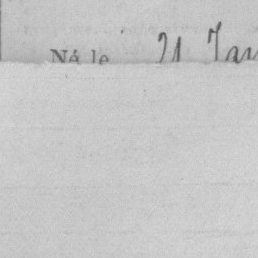 Né le 21 Jan